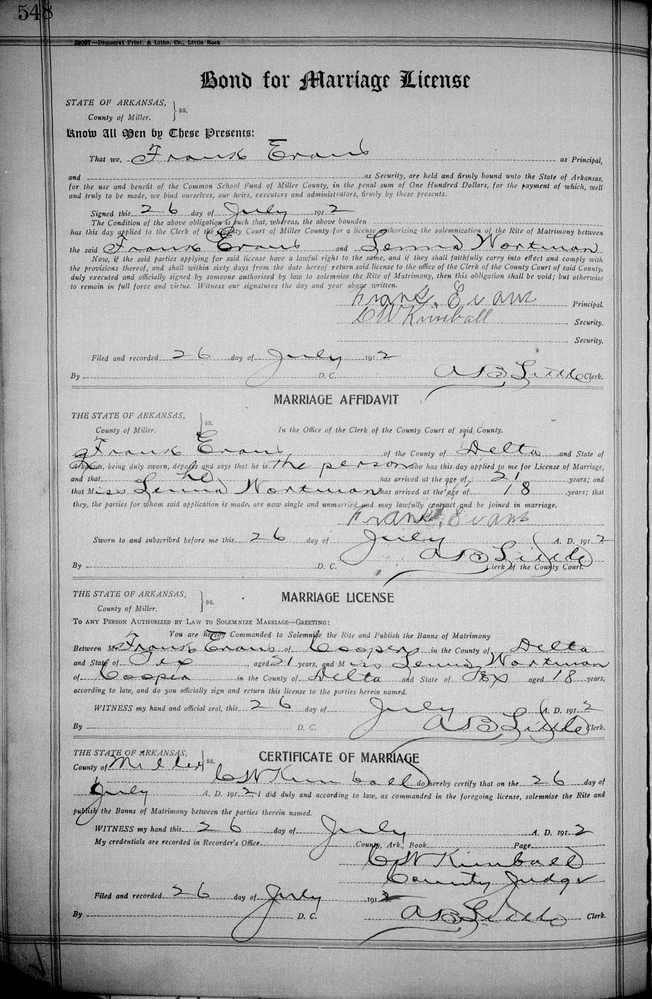 548
Democrat Print. & Litho. Co., Little Rock
Bond for Marriage License
STATE OF ARKANSAS,
County of Miller. } ss.
Know All Men by These Presents:
That we, Frank Evans as Principal,
and as Security, are held and firmly bound unto the State of Arkansas,
for the use and benefit of the Common School Fund of Miller County, in the penal sum of One Hundred Dollars, for the payment of which, well
and truly to be made, we bind ourselves, our heirs, executors and administrators, firmly by these presents.
Signed this 26 day of July 1912
The Condition of the above obligation is such that, whereas, the above bounden
has this day applied to the Clerk of the County Court of Miller County for a license authorizing the solemnization of the Rite of Matrimony between
the said Frank Evans and Lenna Wortman
Now, if the said parties applying for said license have a lawful right to the same, and if they shall faithfully carry into effect and comply with
the provisions thereof, and shall within sixty days from the date hereof return said license to the office of the Clerk of the County Court of said County,
duly executed and officially signed by someone authorized by law to solemnize the Rite of Matrimony, then this obligation shall be void; but otherwise
to remain in full force and virtue. Witness our signatures the day and year above written.
Frank. Evans Principal.
C W Kimball Security.
Security.
Filed and recorded 26 day of July 1912
By D. C. A B Little Clerk.
MARRIAGE AFFIDAVIT
THE STATE OF ARKANSAS,
County of Miller. } ss. In the Office of the Clerk of the County Court of said County.
I Frank Evans of the County of Delta and State of
Tex being duly sworn, deposes and says that he is the person who has this day applied to me for License of Marriage,
and that he has arrived at the age of 21 years; and
that Miss Lenna Wortman has arrived at the age of 18 years; that
they, the parties for whom said application is made, are now single and unmarried and may lawfully contract and be joined in marriage.
Frank Evans
Sworn to and subscribed before me this 26 day of July A. D. 1912
By D. C. A B Little Clerk of the County Court.
THE STATE OF ARKANSAS,
County of Miller. } ss. MARRIAGE LICENSE
TO ANY PERSON AUTHORIZED BY LAW TO SOLEMNIZE MARRIAGE—GREETING:
You are hereby Commanded to Solemnize the Rite and Publish the Banns of Matrimony
Between Mr. Frank Evans of Cooper in the County of Delta
and State of Tex, aged 21 years, and Miss Lenna Wortman
of Cooper in the County of Delta and State of Tex aged 18 years,
according to law, and do you officially sign and return this license to the parties herein named.
WITNESS my hand and official seal, this 26 day of July A. D. 1912
By D. C. A B Little Clerk.
THE STATE OF ARKANSAS,
County of Miller } ss. CERTIFICATE OF MARRIAGE
I C W Kimball do hereby certify that on the 26 day of
July A. D. 1912 I did duly and according to law, as commanded in the foregoing license, solemnise the Rite and
publish the Banns of Matrimony between the parties therein named.
WITNESS my hand this 26 day of July A. D. 1912
My credentials are recorded in Recorder's Office County, Ark., Book Page
C W Kimball
County Judge
Filed and recorded 26 day of July 1912
By D. C. A B Little Clerk.